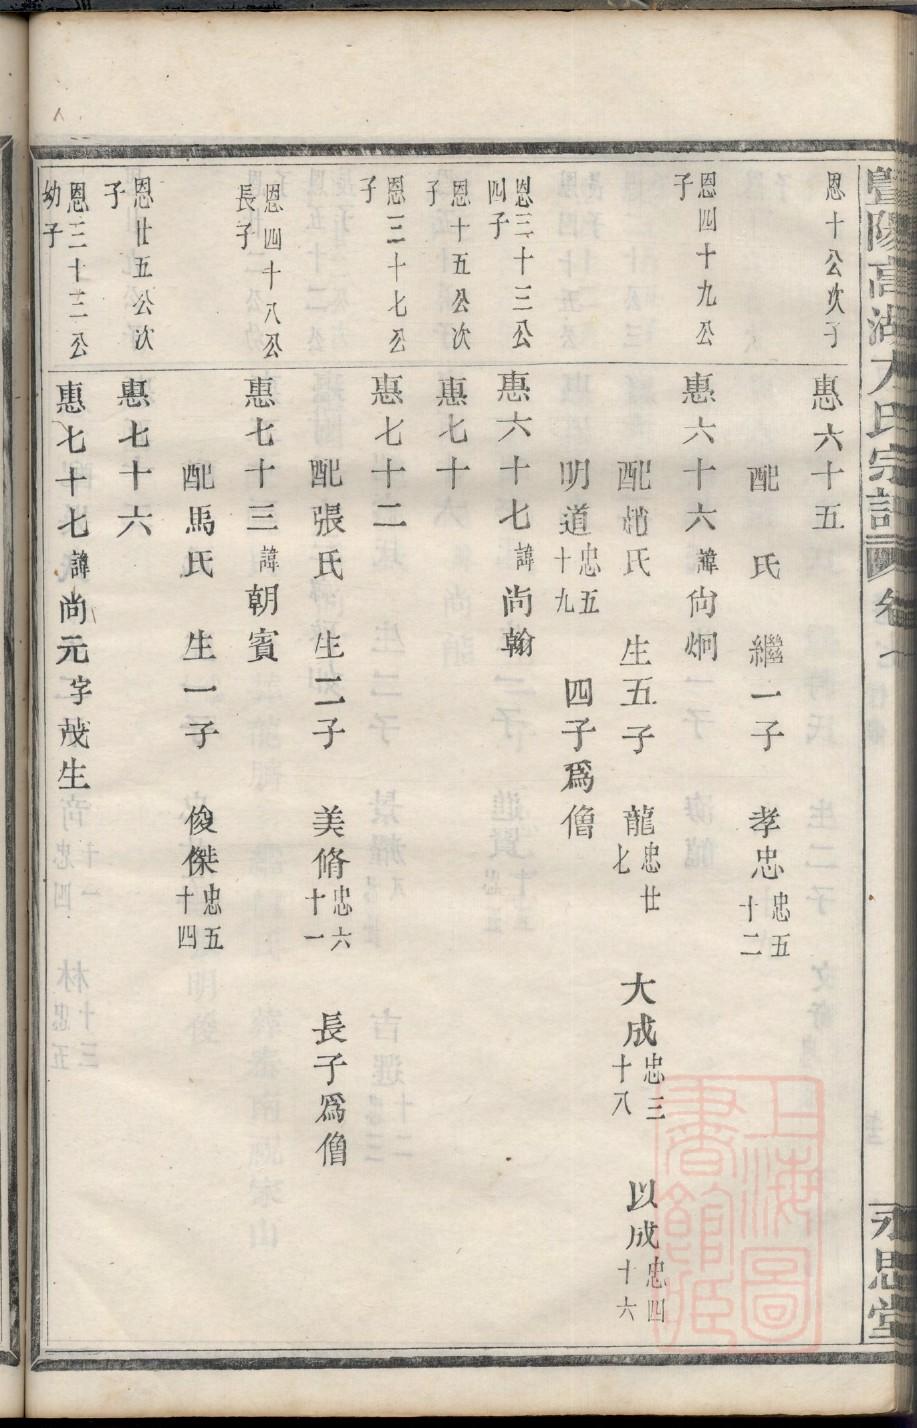 暨陽高湖方氏宗譜 卷一 永思堂
恩十公次子 惠六十五
配 氏 繼一子 孝忠忠五十二
恩四十九公子 惠六十六諱尙炯
配趙氏 生五子 龍忠廿七 大成忠三十八 以成忠四十六
明道忠五十九 四子爲僧
恩三十三公四子 惠六十七諱尚翰
恩十五公次子 惠七十
恩三十七公子 惠七十二
配張氏 生二子 美脩忠六十一 長子爲僧
恩四十八公長子 惠七十三諱朝賓
配馬氏 生一子 俊傑忠五十四
恩廿五公次子 惠七十六
恩三十三公幼子 惠七十七諱尚元字茂生
上海圖書館藏